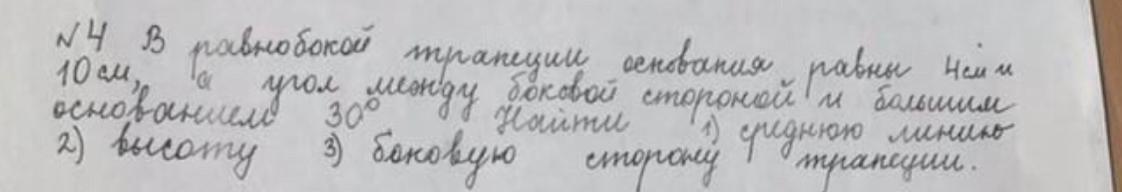 №4 В равнобокой трапеции основания равны 4см и
10см, а угол между боковой стороной и большим
основанием 30° Найти 1) среднюю линию
2) высоту 3) боковую сторону трапеции.